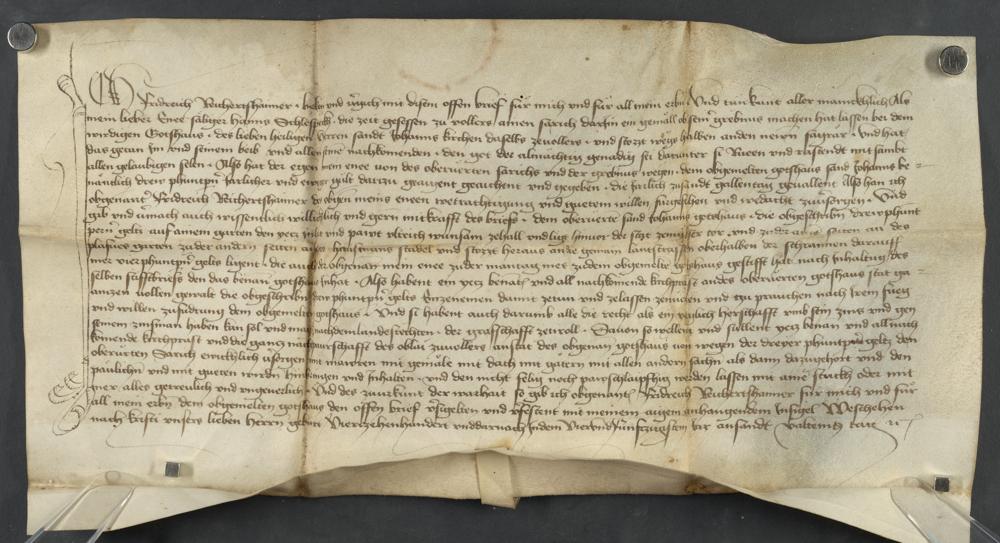 Ich Fridreich Reichertshaimer · bekenn und vergich mit disem offen brief für mich und für all mein erben Und tun kunt aller mannichlich Als
mein lieber Enee säliger Hanns die zeit gesessen zu vollers ainen sarich darein ein gemäl ob sein grebnus machen hat lassen bei dem
wirdigen Gotshaus · des lieben heiligen herren sandt Johanns kirchen daselbs zevollers · und stozt halben anden newen sagrär · Und hat
das getan im und seinem beib und allen seine nachkomenden · den got der almächtig genadig sei darunter si Rueen und rastendt mit sambt
allen gelaubigen selen · Also hat der egen mein enee von des oberürten sarichs und der grebnus wegen · dem obgemelten gotshaus sand Johanns be
nantlich drew phunt järlicher und ewiger gült darzu geaigent gemachent und gegeben · die järlich zusandt gallentag gevallent Also han ich
obgenant Fridreich Reichertshaimer des obgen meins eneen betrachtigung und guetem willen fürgesehen und bedacht Und
gib und auch wissentlich williklich und gern mit krafft des briefs · dem oberürte sand Johanns gotshaus · die obgeschriben drew phunt
perner gelts auf ainem garten den vecz und pawt ulreich zehall und ligt vor der stat tor · und zu der aine seiten an des
plasúes garten zu der andern seiten an hanssmans stadel und stozt heraus an die gemain lantstrassen oberhalben der schrannen darauss
mer vier phunt gelts ligent · die auch der obgenant mein enee zu der mantag mess zu dem obgemelte gotshaus gestifft hat nach Inhaltung des
selben stifftbriefs den das benant gotshaus Inhat · Also habent ein vecz benant und all nachkomende kirchpröst andes oberürten gotshaus stat ga
anzen vollen gewalt die obgeschriben drew phunt gelts Einzenemen damit zetun und zelassen zeniessen und zu prauchen nach Irem fueg
und willen zufudrung dem obgemelten gotshaus · Und si habent auch darumb alle die recht als ein yeglich herschafft umb sein zins und gen
seinem zinsman haben kan sol und mag nach dem landesrechten · der grafschafft zetiroll · Davon so wellen und süllent vecz benan und all nach
komende kirchprost und die ganz nachpaurschafft des oblai zuvollers anstat des obgenan gotshaus von wegen der dreyer phunt gelts den
oberürten Sarch ewichlich versorgen mit mawren mit gemäle mit dach mit gätern mit allen andern sachn als dann darzugehört und den
paulichn und mit gueten wirdn und Inhalten · und den nicht felig noch pawschlaipfhig werden lassen mit aine stuckh oder mit
mer alles getreulich und ungeuerlich · Und des zu urkünt der warhait so gib ich obgenant Fridreich Reichertshaimer für mich und für
all mein erbn dem obgemelten gotshaus den offen brief und vestent mit meinem aigem anhangendem Insigel Beschehen
nach kristi unsers lieben herrn geburt Vierzehenhundert und darnach Indem Vierundfünfczigistem Iar ansandt valteins tag